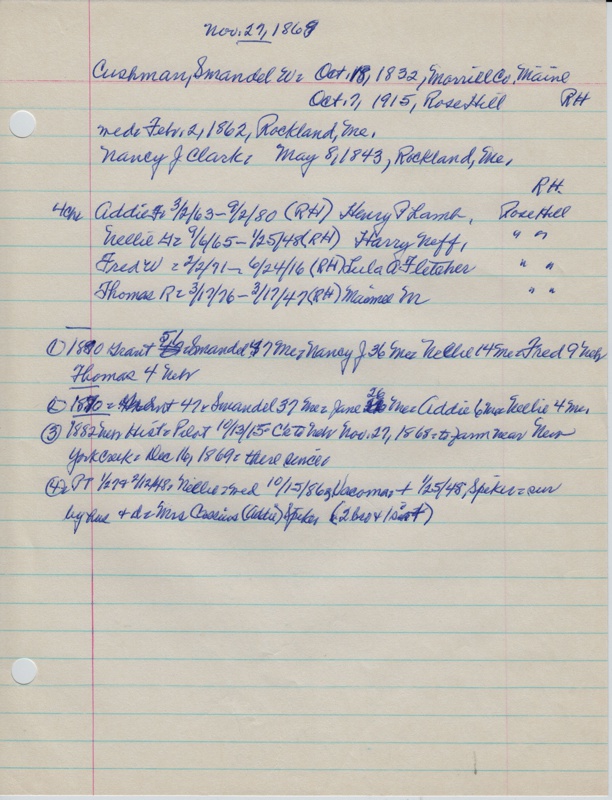 Nov. 27, 1869
Cushman, Swandel W= Oct. 18, 1832, Morrill Co. Maine
Oct. 7, 1915, Rose Hill RH
med= Febr. 2, 1862, Rockland, Me.
Nancy J Clark= May 8, 1843, Rockland, Me.
RH.
4 ch= Addie 3/2/63 - 9/2/80 (RH) Henry P Lamb, Rose Hill
Nellie G= 9/6/65 - 1/25/48 (RH) Harry Neff, " "
Fred W = 2/2/71 - 6/24/16 (RH) Lula A Fletcher " "
Thomas R = 3/17/76 - 3/17/47 (RH) M " "
① 1880 Grant 56 = Swandel 47 Me = Nancy J 36 Me = Nellie 14 Me = Fred 9 Nebr
Thomas 4 Nebr
② 1870 = 47 = Swandel 37 Me = Jane 26 Me = Addie 6 Me = Nellie 4 Me.
③ 1882 Nebr Hist = Pilot 10/13/15 = C to Nebr Nov. 27, 1868 = to farm near New
York Creek = Dec 16, 1869 = there since
④ = PT 1/27 & 2/12/48 = Nellie = med 10/15/86 Tacoma = + 1/25/48, Spiker = sur
by hus + d = Mrs (Addie) Spiker (2 bro + 1 sis +)